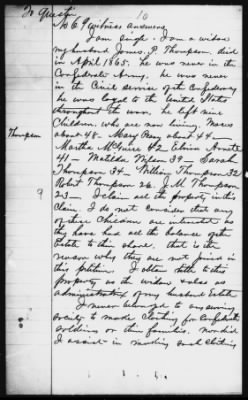 10
To Question
No 69 witness answers
I am single. I am a widow
my husband James P. Thompson, died
in April 1865. he was never in the
Confederate Army. he was never
in the Civil service of the Confederacy
he was loyal to the United States
throughout the war, he left nine
Children, who are now living.
about 48 - Mary 44 -
Martha McGuire 42
41 - Matilda Nelson 39 - Sarah
Thompson 34. William Thompson 32
Robert Thompson 26. J. M. Thompson
23 - I claim all the property in this
Claim. I do not consider that any
of these Children are interested as
they have had all the balance of the
Estate to their share, that is the
reason why they are not joined in
this petition. I obtain title to this
property as the widow & also as
administratrix of my husband Estate
I never belonged to any sewing
society to made clothing for Confederate
soldiers or their families, nor did
I assist in making such clothing
Thompson
9